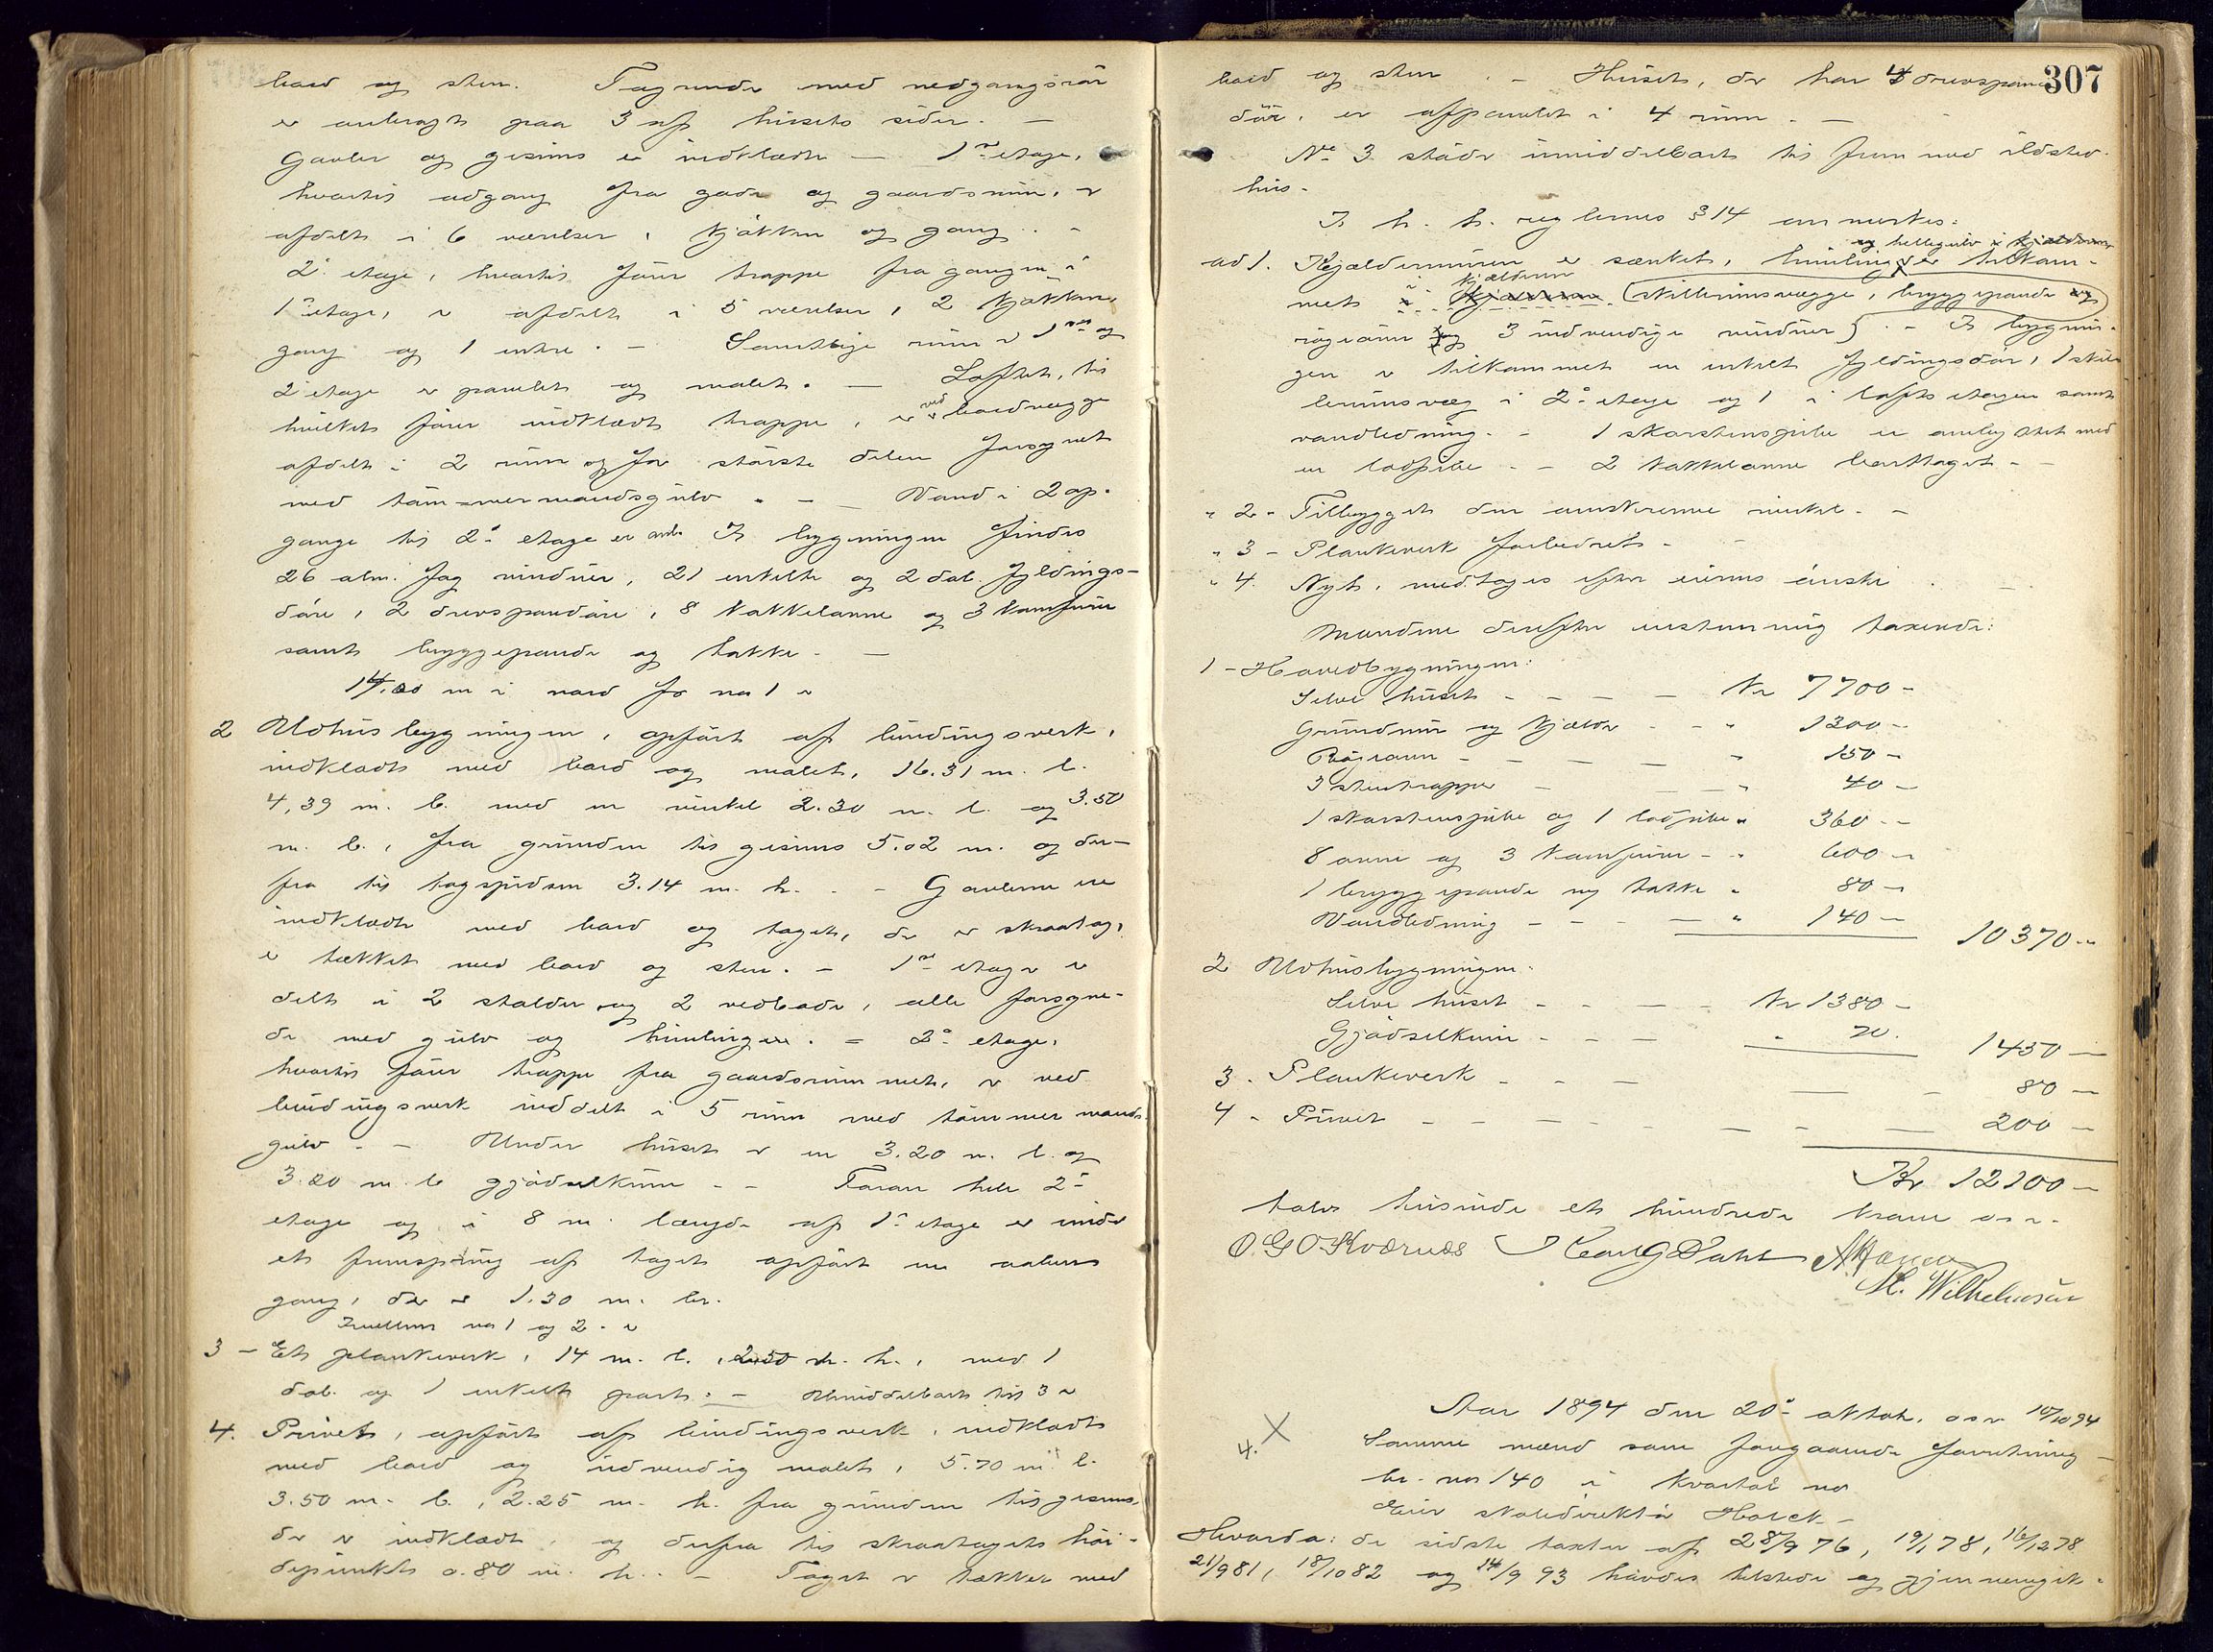 bord og sten. Tagrende med nedgangsrör
er anbragt paa 3 af husets sider. —
Gavler og gesims er indklædt — 1ste etage,
hvortil adgang fra gade og gaardsrum, er
afdelt i 6 værelser, kjökken og gang. -
2den etage, hvortil förer trappe fra gangen i
1ste etage, er afdelt i 5 værelser, 2 kjökken,
gang og 1 entre. - Samtlige rum i 1ste og
2den etage er panelet og malet. — Loftet, til
hvilket förer indklædt trappe, er ved bordvægge
afdelt i 2 rum og for störste delen forsynet
med tömmermandsgulv. - Vand i 2 op-
gange til 2den etage er anb. I bygningen findes
26 alm. fag vinduer, 21 enkelte og 2 dob. fyldings-
döre, 2 drevspandöre, 8 kakkelovne og 3 komfurer
samt bryggepande og takke. —
14,20 m i nord for no 1 er
2 Udhusbygningen, opfört af bindingsverk,
indklædt med bord og malet, 16.31 m. l.
4,39 m. b. med en vinkel 2.30 m. l. og 3.50
m. b., fra grunden til gesims 5.02 m. og der-
fra til tagspidsen 3.14 m. h. - Gavlerne er
indklædt med bord og taget, der er skraatag,
er tækket med bord og sten. - 1ste etage er
delt i 2 stalder og 2 vedboder, alle forsyne-
de med gulv og himlinger. = 2den etage,
hvortil förer trappe fra gaardsrummet, er ved
bindingsverk inddelt i 5 rum med tömmermands-
gulv. - Under huset er en 3.20 m. l. og
3.20 m. b. gjödselkum. - Foran hele 2den
etage og i 8 m. længde af 1ste etage er under
et fremspring af taget opfört en aaben
gang, der er 1.30 m. br.
Imellem no 1 og 2. er
3 - Et plankeverk, 14 m. l., 2.50 m. h., med 1
dob. og 1 enkelt port. - Umiddelbart til 3 er
4. Privet, opfört af bindingsverk, indklædt
med bord og udvendig malet, 5.70 m. l.
3.50 m. b., 2.25 m. h. fra grunden til gesims,
der er indklædt, og derfra til skraatagets höi-
depunkt 0.80 m. h. - Taget er tækket med
307
bord og sten. - Huset, der har 4 drevspan-
dör, er afpanelet i 4 rum. —
No 3 stöder umiddelbart til frem med ildsted-
hus.
I h. t. reglernes § 14 anmerkes:
og hellegulv i kjælderen
ad 1. Kjældermuren er sænket, himling er tilkom-
kjælderen
met i (skillerumsvægge, bryggepande og
rögrönn og 3 indvendige vinduer). - I bygnin-
gen er tilkommet en enkelt fyldingsdör, 1 skil-
lerumsvæg i 2den etage og 1 i loftsetagen samt
vandledning. - 1 skorstenspibe er ombyttet med
en lodpibe. - 2 kakkelovne borttaget. -
" 2 - Tilbygget den omskrevne vinkel. -
" 3 - Plankeverk forbedret. -
" 4. Nyt, medtages efter eierens önske.
Mændene derefter enstemmig taxerede:
1 - Hovedbygningen:
Selve huset - - - - Kr 7700 -
Grundmur og kjælder - - " 1300 -
Rögrönn - - - - " 150 -
3 stentrapper - - - " 40 -
1 skorstenspibe og 1 lodpibe " 360 -
8 ovne og 3 komfurer - " 600 -
1 bryggepande og takke " 80 -
Vandledning - - - - " 140 -
10370 -
2 Udhusbygningen:
Selve huset - - - - Kr 1380 -
Gjödselkum - - - " 70.
1450 -
3. Plankeverk - - - - - 80 -
4 - Privet - - - - - - 200 -
Kr 12100 -
tolv tusinde et hundrede kroner o s v.
O. G. O. Kværnæs Carl G Dahl
M. Wilhelmsen
Aar 1894 den 20de oktob. o s v 10/10 94
4. X
Samme mænd som foregaaende forretning
br. no 140 i kvartal no
Eier skoledirektör Holck -
Hvorda: de sidste taxter af 28/9 76, 19/1 78, 16/12 78
21/9 81, 18/10 82 og 14/9 93 havdes tilstede og gjennemgik-